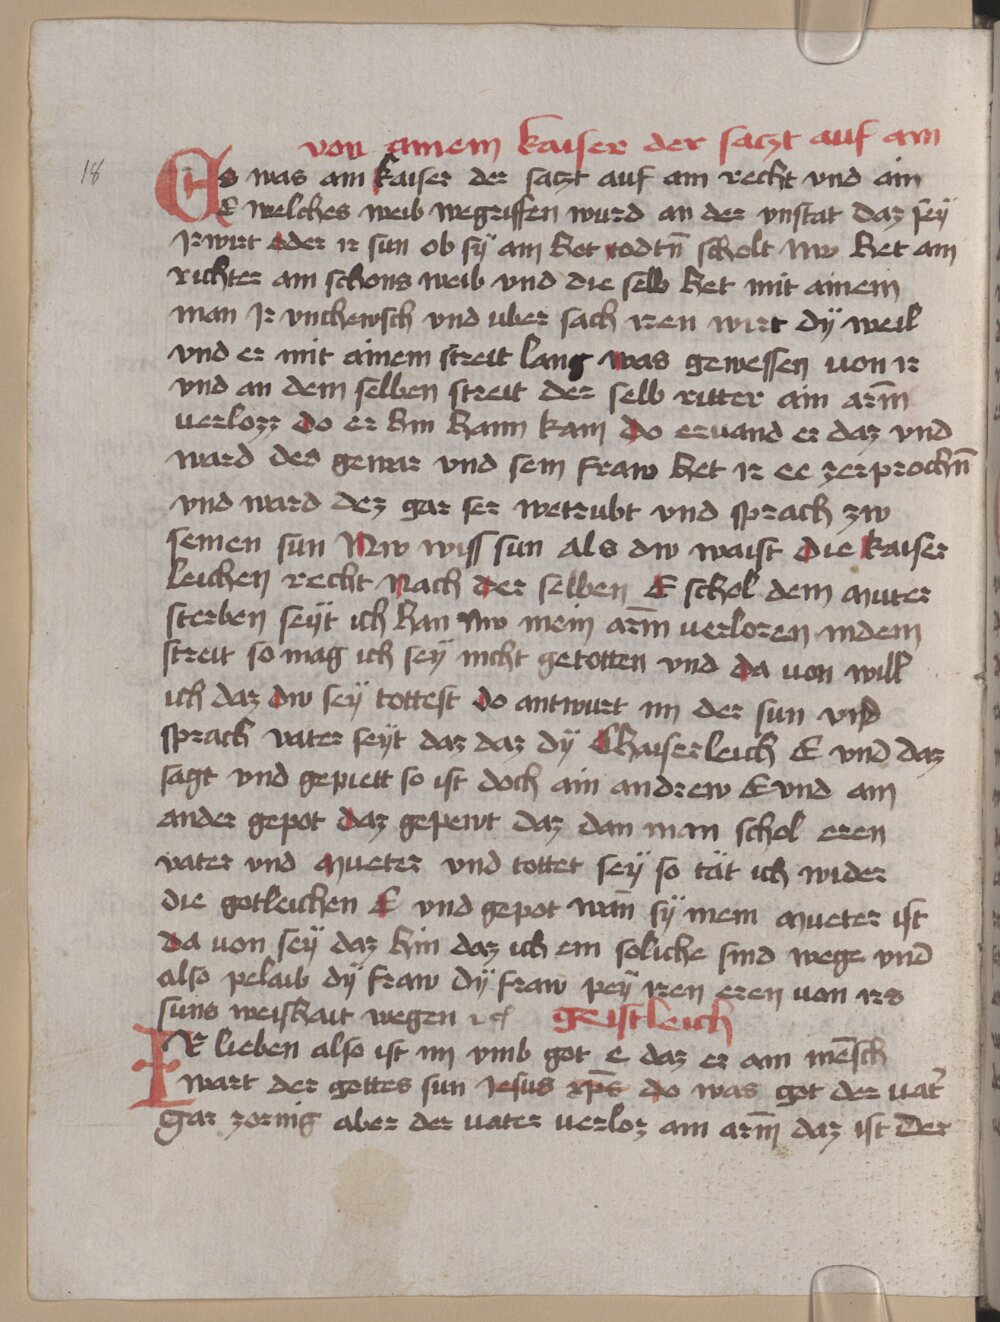 von ainem kaiser der saczt auf ain
18
Es was ain kaiser der saczt auf ain recht vnd ain
E welches weib wegriffen wurd an der vnstat daz seÿ
Ir wirt oder ir sun ob sÿ ain het todtn̄ scholt Nw het ain
richter ain schons weib vnd die selb het mit ainem
man Ir vnchewsch vnd uber sach iren wirt dÿ weil
vnd er mit ainem streit lang was gewessen von ir
vnd an dem selben streit der selb ritter ain arm̄
verlozz do er hin haim kam do ervand er daz vnd
ward des gewar vnd sein fraw het ir ee zerprochn̄
vnd ward dez gar ser wetrubt vnd sprach zw
seinen sun Nw wiss sun als dw waist die kaiser
leichen recht Nach der selben E schol dein muter
sterben seÿt ich han nw mein arm̄ verloren indem
streit so mag ich seÿ nicht getotten vnd da von will
ich daz dw seÿ tottest do antwurt im der sun vnd
sprach vater seÿt daz daz dÿ Chaiserleich E vnd daz
sagt vnd gepiett so ist doch ain andrew E vnd ain
ander gepot daz gepewt daz dan man schol eren
vater vnd mueter vnd tottet seÿ so tät ich wider
die gotleichen E vnd gepot wan̄ sÿ mein mueter ist
da von seÿ daz hin daz ich ein soliche sind wege vnd
also pelaib dÿ fraw dÿ fraw peÿ iren eren von irs
suns weishait wegen Geistleich
Ir lieben also ist im vmb got e daz er ain mēsch
wart der gottes sun Jesus xp̄s do was got der vat̓
gar zornig aber der vater verloz ain arm̄ daz ist Der